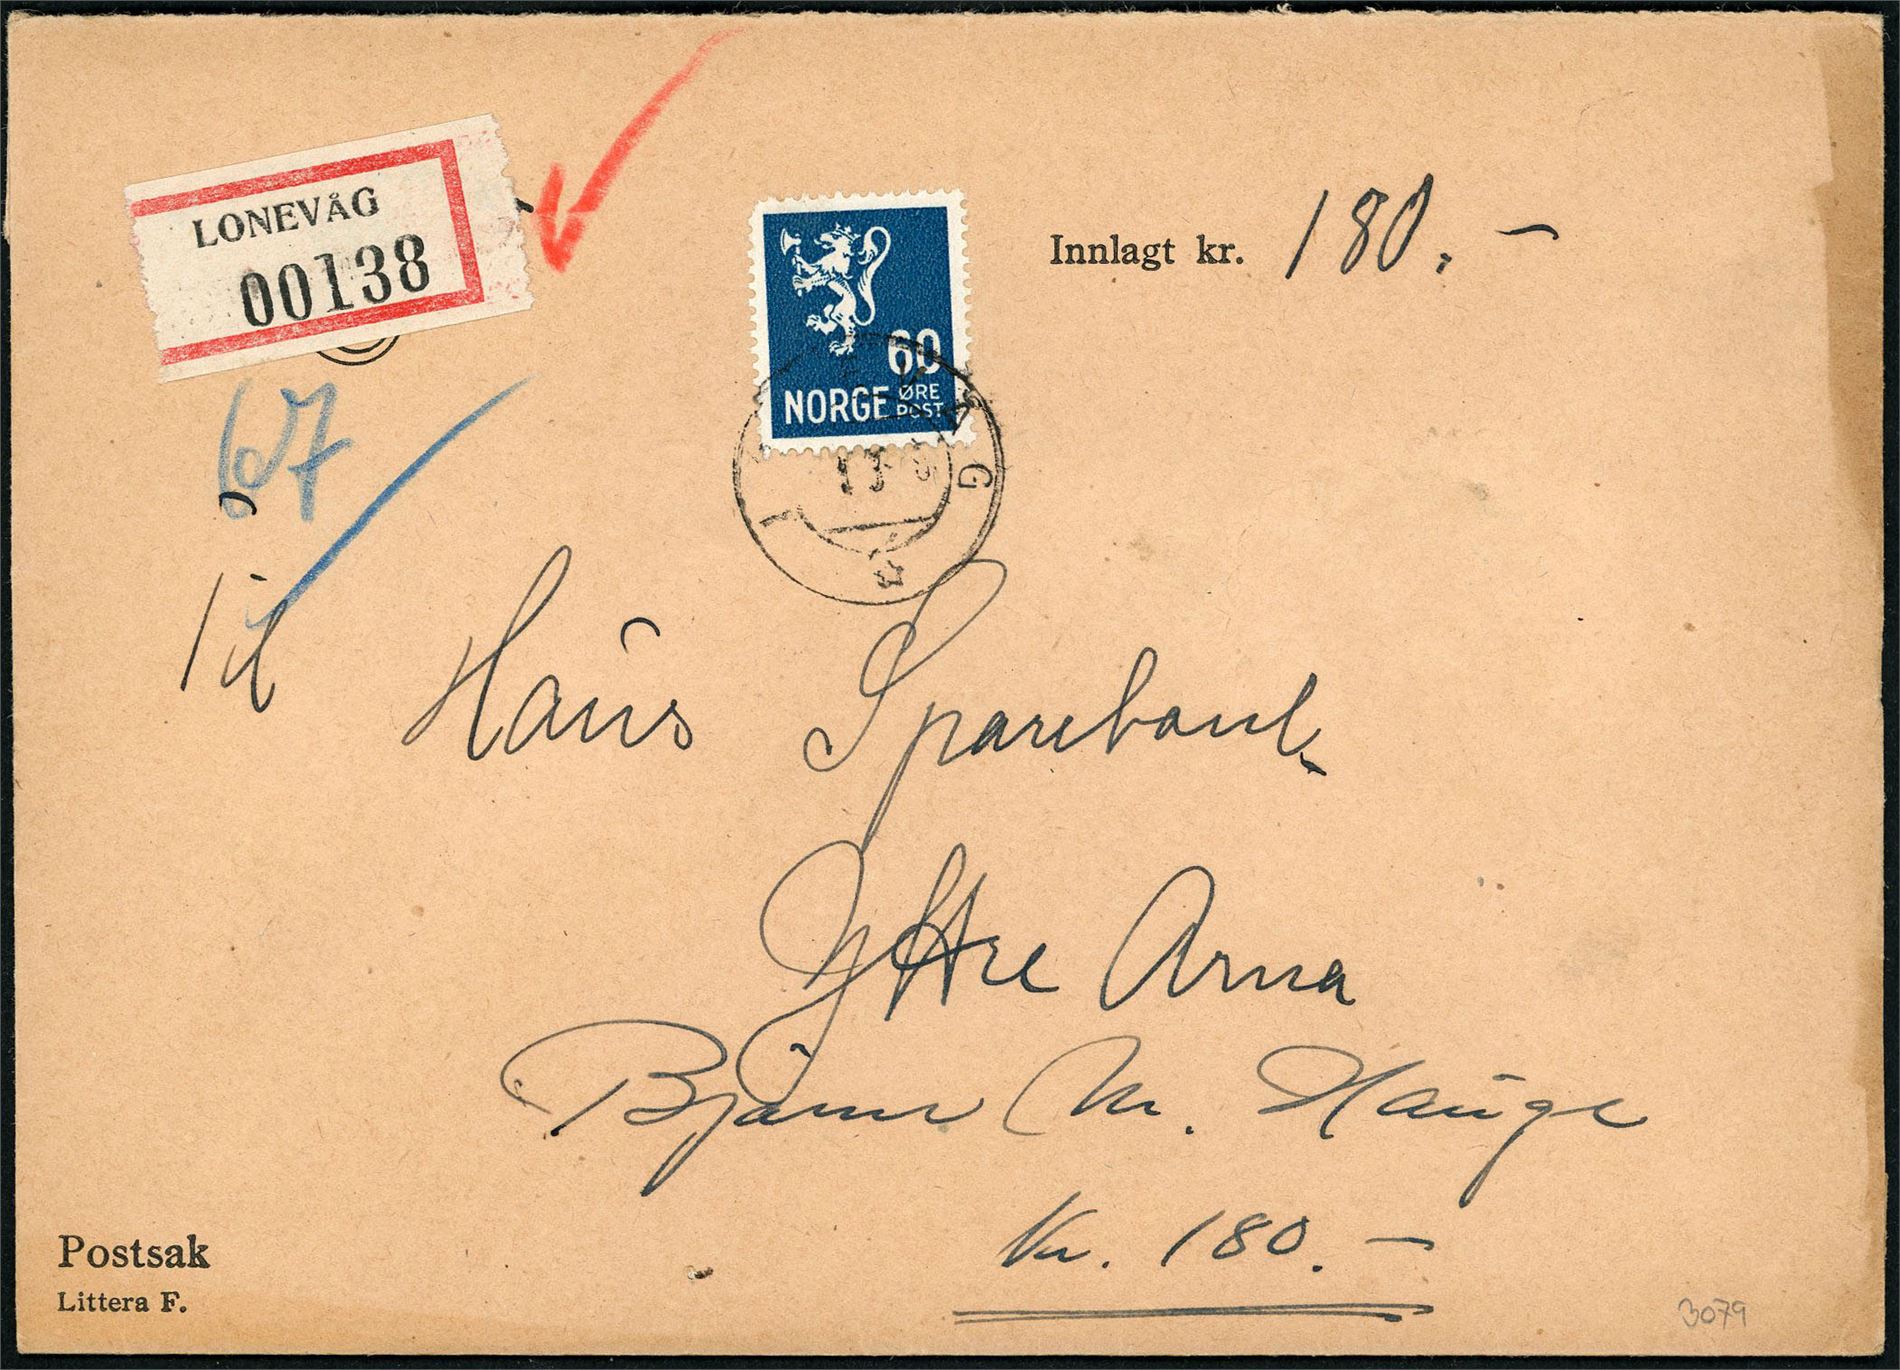 LONEVÅG
00138
Innlagt kr. 180.-
60
NORGE ØRE
POST
67
Til
Haus Sparebank
Yttre Arna
Bjarne M. Hauge
Kr. 180.-
Postsak
Littera F.
3079